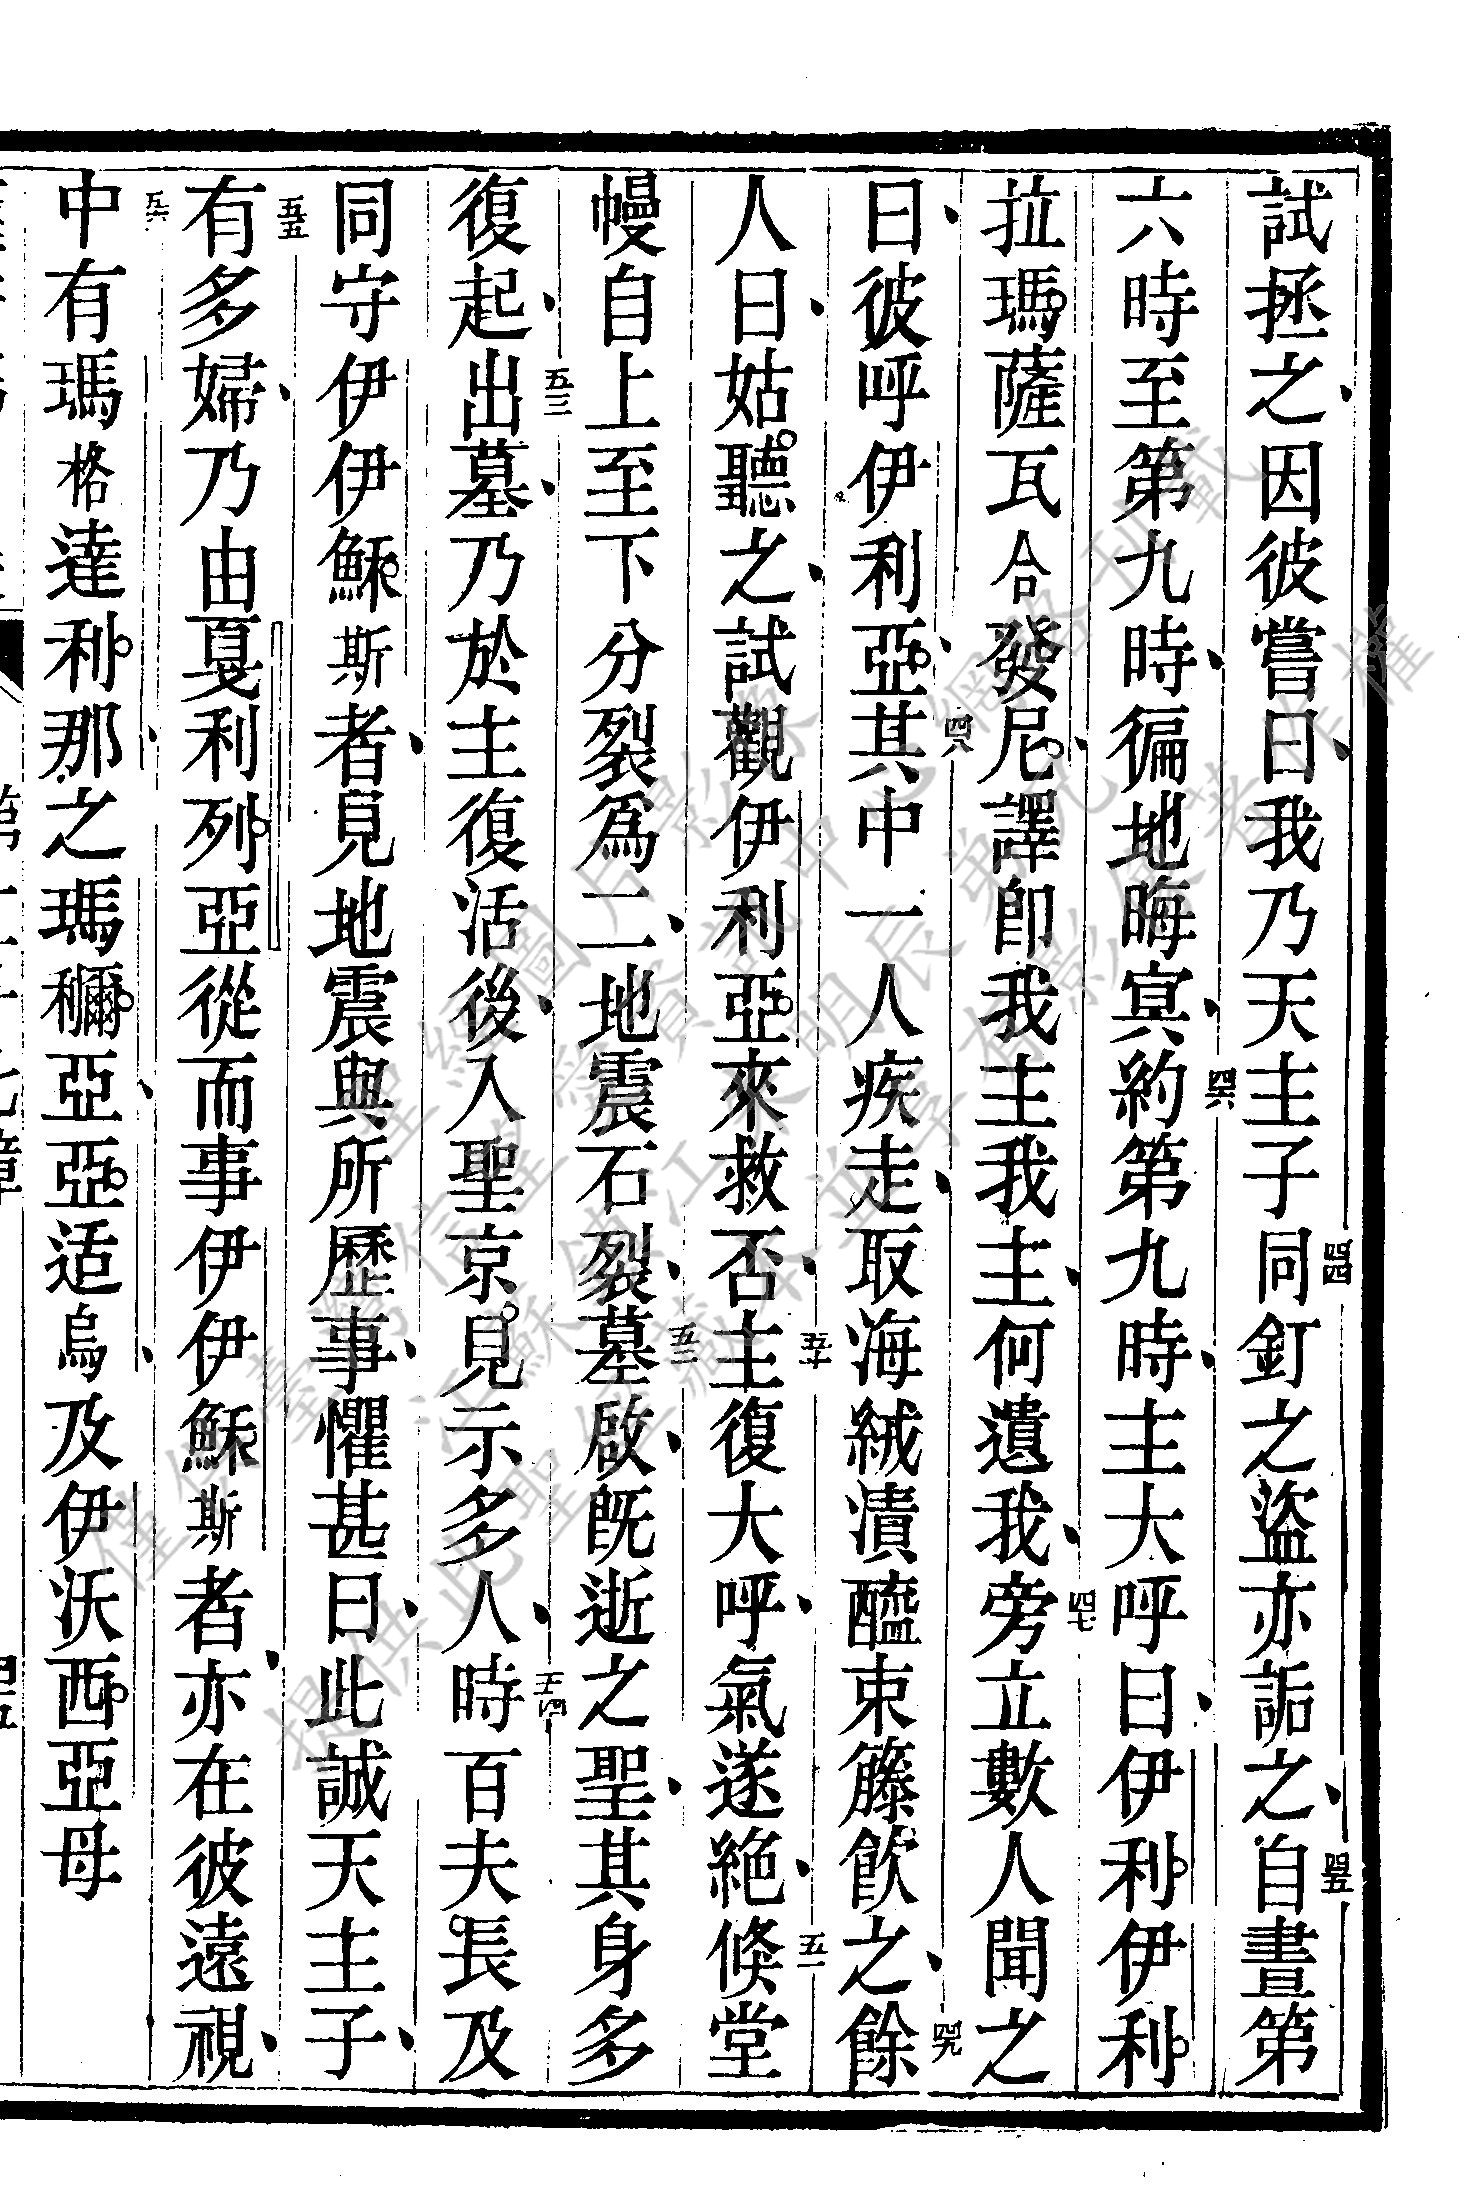 試拯之因彼嘗曰我乃天主子四四同釘之盜亦詬之四五自晝第
六時至第九時徧地晦冥四六約第九時主大呼曰伊利伊利
拉瑪薩瓦合發尼譯卽我主我主何遺我四七旁立數人聞之
曰彼呼伊利亞四八其中一人疾走取海絨漬醯束籐飮之四九餘
人曰姑聽之試觀伊利亞來救否五十主復大呼氣遂絕五一倏堂
幔自上至下分裂爲二地震石裂五二墓啟旣逝之聖其身多
復起五三出墓乃於主復活後入聖京見示多人五四時百夫長及
同守伊伊穌斯者見地震與所歷事懼甚曰此誠天主子
五五有多婦乃由戛利列亞從而事伊伊穌斯者亦在彼遠視
五六中有瑪格達利那之瑪穪亞亞适烏及伊沃西亞母